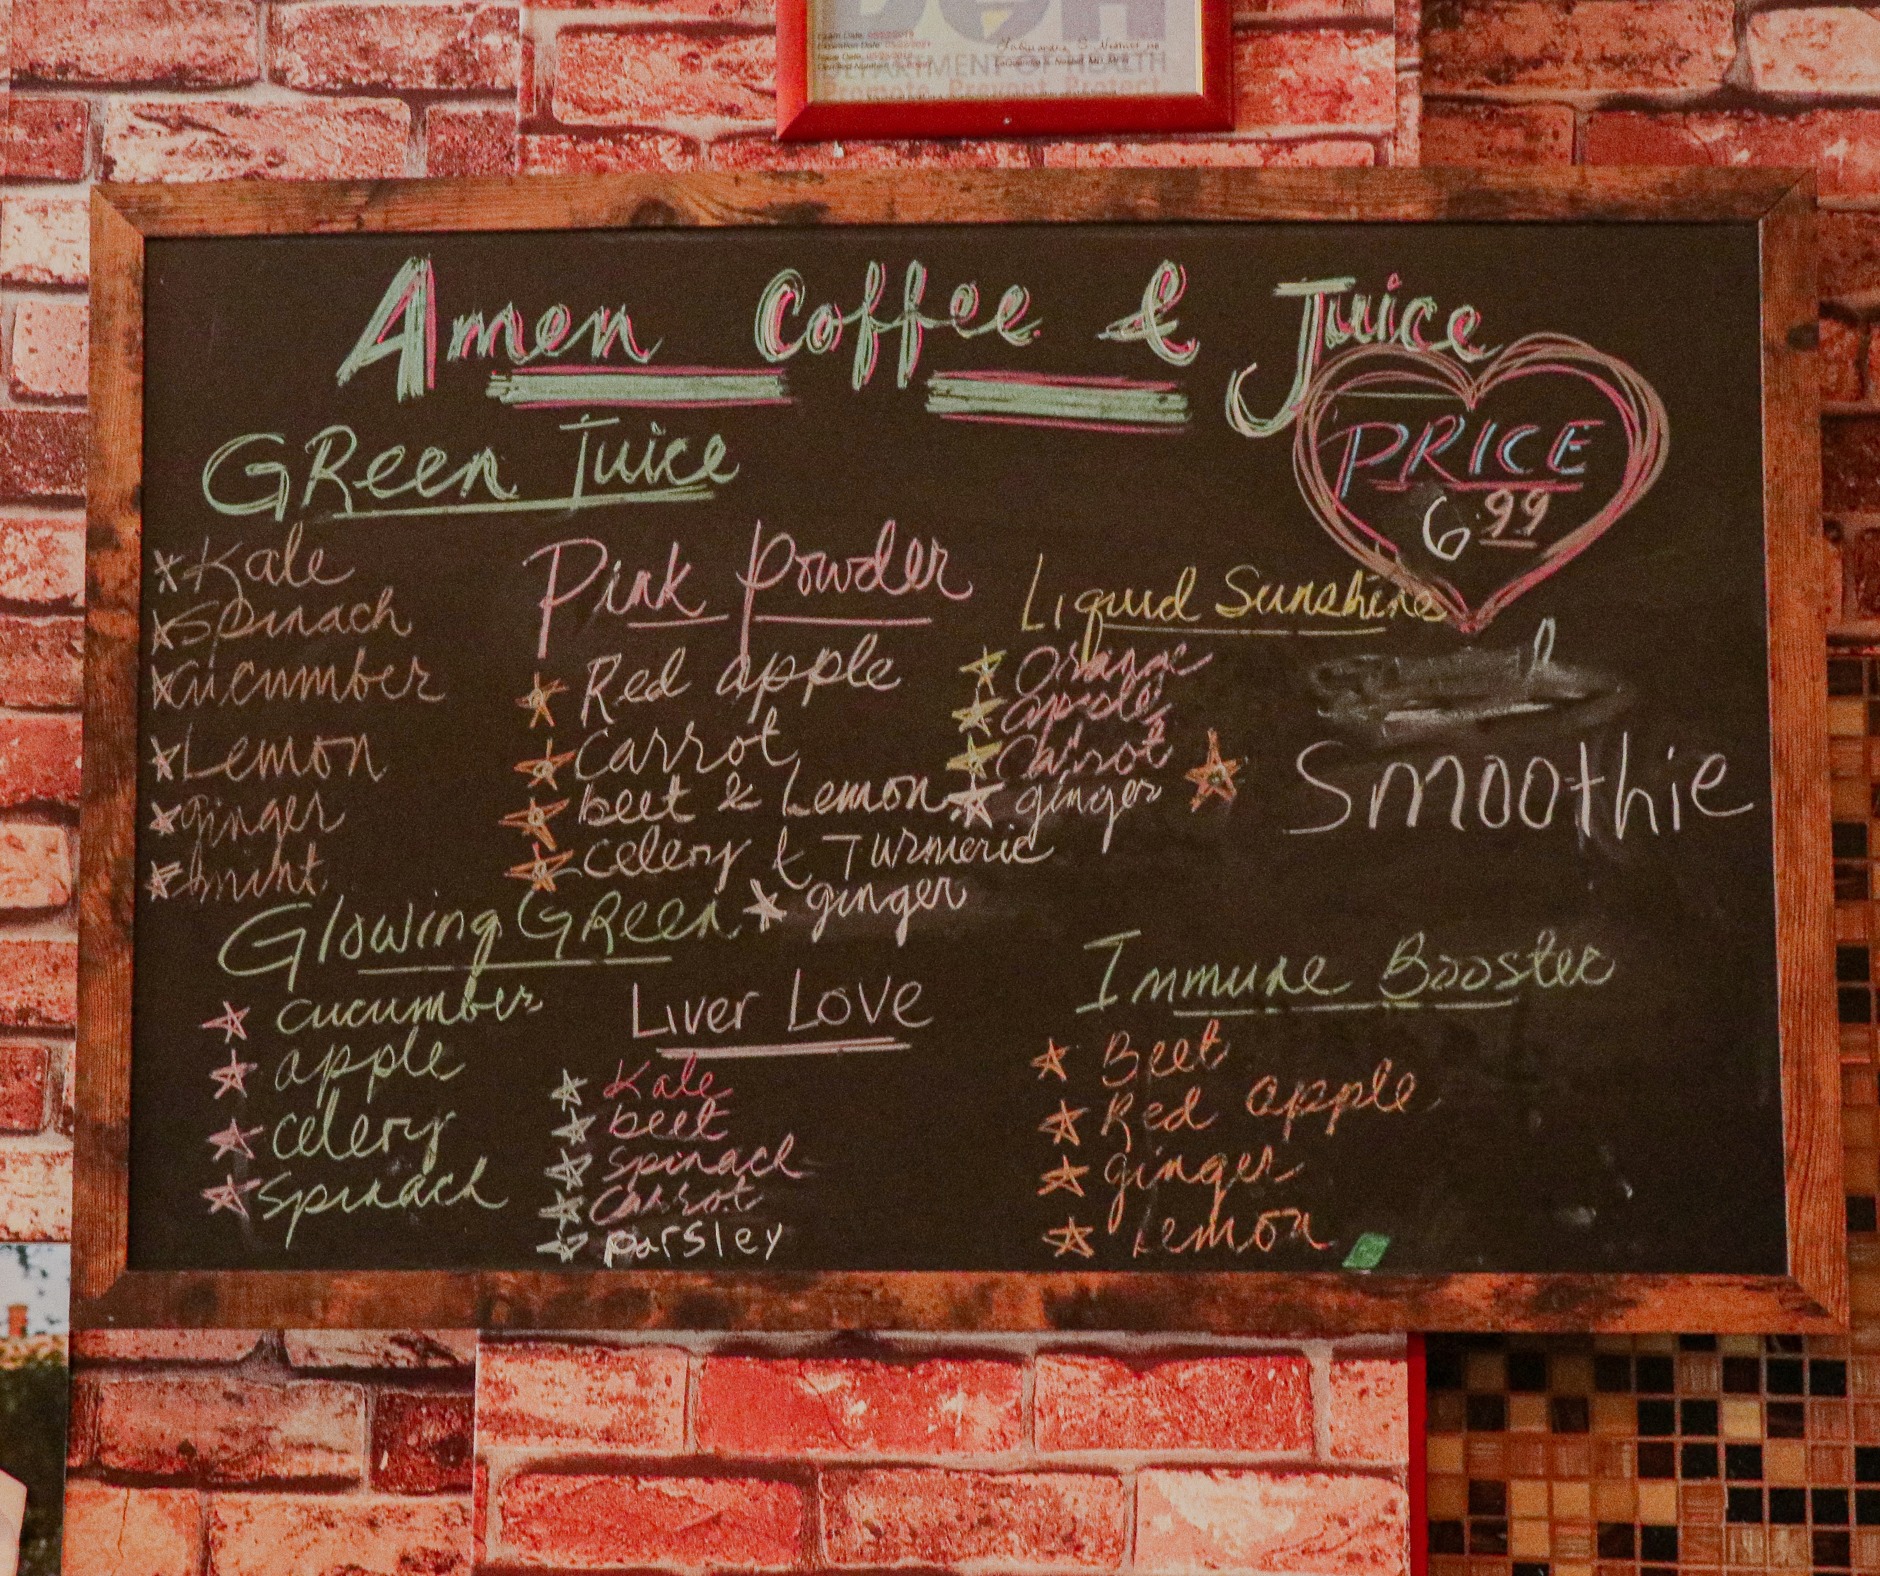 DEPARTMENT OF HEALTH
Promote. Prevent. Protect.
Amen Coffee & Juice
PRICE
6.99
GReen Juice
*Kale
*Spinach
*Cucumber
*Lemon
*ginger
*mint
Pink Powder
Red apple
Carrot
beet & Lemon
Celery & Turmeric
* ginger
Liquid Sunshine
Orange
apple
Carrot
ginger
Smoothie
Glowing GReen
cucumber
apple
celery
Spinach
Liver Love
Kale
beet
Spinach
Carrot
parsley
Immune Booster
Beet
Red apple
ginger
Lemon